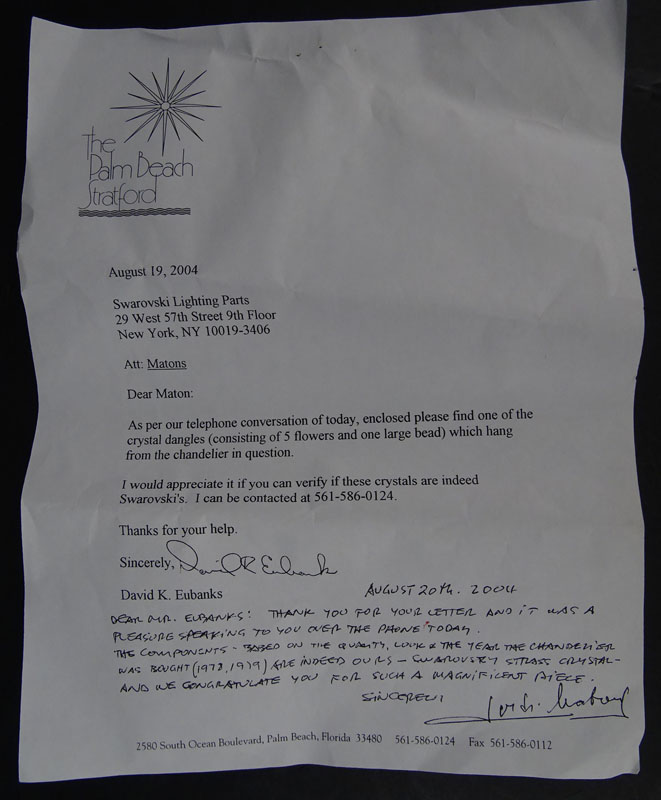 The
Palm Beach
Stratford
August 19, 2004
Swarovski Lighting Parts
29 West 57th Street 9th Floor
New York, NY 10019-3406
Att: Matons
Dear Maton:
As per our telephone conversation of today, enclosed please find one of the
crystal dangles (consisting of 5 flowers and one large bead) which hang
from the chandelier in question.
I would appreciate it if you can verify if these crystals are indeed
Swarovski's. I can be contacted at 561-586-0124.
Thanks for your help.
Sincerely, David K Eubanks
David K. Eubanks
AUGUST 20TH. 2004
DEAR MR. EUBANKS: THANK YOU FOR YOUR LETTER AND IT WAS A
PLEASURE SPEAKING TO YOU OVER THE PHONE TODAY.
THE COMPONENTS - BASED ON THE QUALITY, LOOK & THE YEAR THE CHANDELIER
WAS BOUGHT (1978, 1979) ARE INDEED OURS - SWAROVSKY STRASS CRYSTAL -
AND WE CONGRATULATE YOU FOR SUCH A MAGNIFICENT PIECE.
2580 South Ocean Boulevard, Palm Beach, Florida 33480 561-586-0124 Fax 561-586-0112